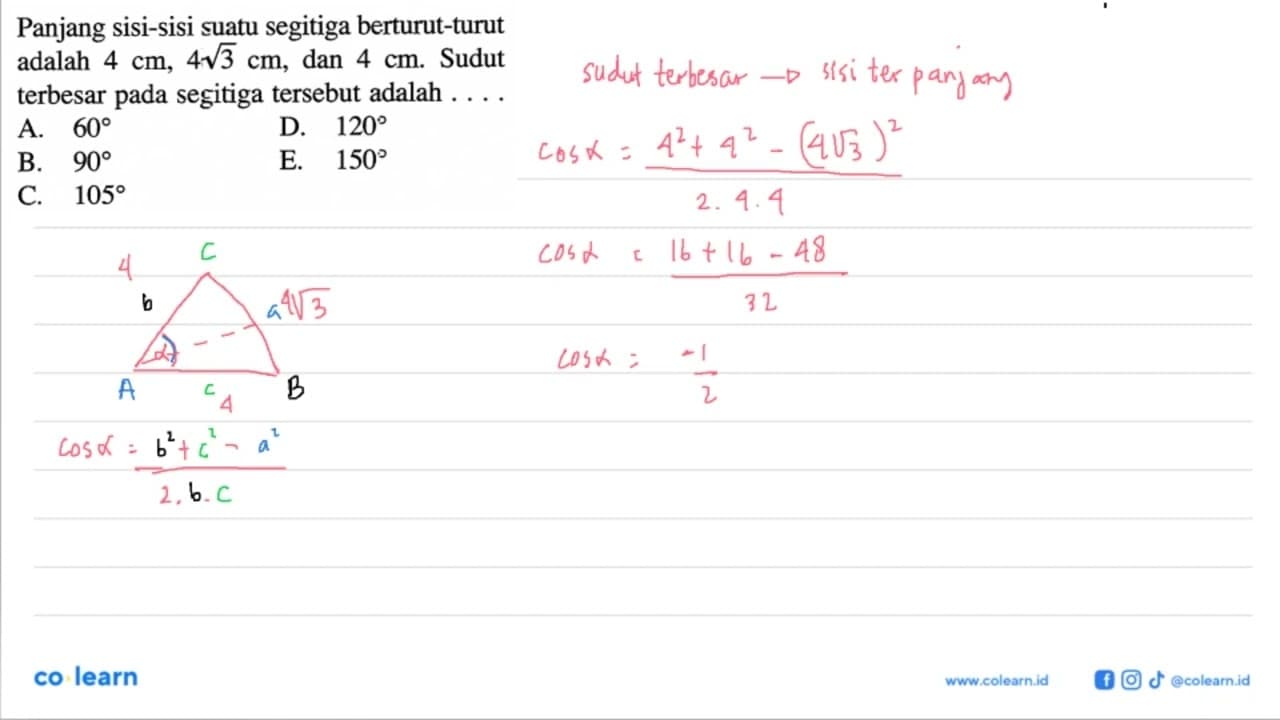 Panjang sisi-sisi suatu segitiga berturut-turut
adalah 4 cm, 4√3 cm, dan 4 cm. Sudut
terbesar pada segitiga tersebut adalah . . . .
A. 60° D. 120°
B. 90° E. 150°
C. 105°
sudut terbesar → sisi terpanjang
cos α = (4² + 4² - (4√3)²) / (2 . 4 . 4)
cos α = (16 + 16 - 48) / 32
cos α = -1/2
4 C
b a 4√3
α
A c 4 B
cos α = (b² + c² - a²) / (2 . b . c)
co learn
www.colearn.id @colearn.id